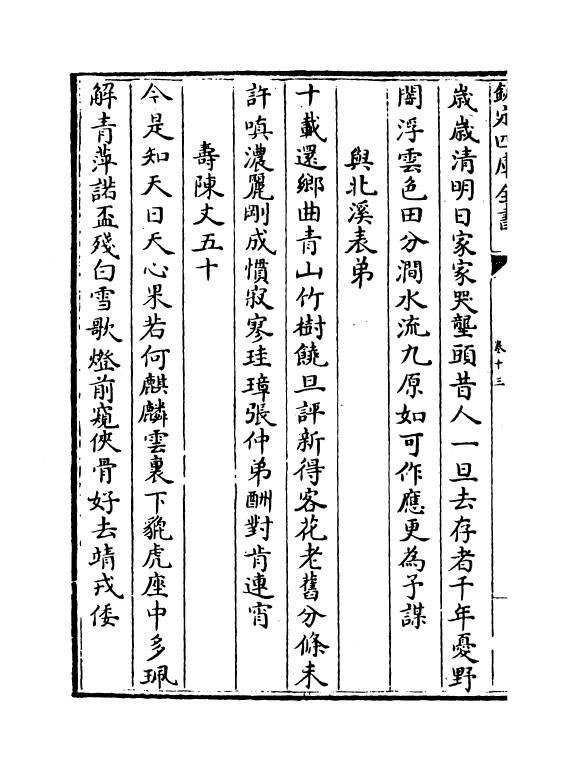 欽定四庫全書
卷十三
歲歲清明日家家哭壟頭昔人一旦去存者千年憂野
闊浮雲色田分澗水流九原如可作應更為予謀
與北溪表弟
十載還鄉曲青山竹樹饒旦評新得客花老舊分條未
許嗔濃麗剛成慣寂寥珪璋張仲弟酬對肯連宵
壽陳丈五十
今是知天日天心果若何麒麟雲裏下貔虎座中多珮
解青萍諾盃殘白雪歌燈前窺俠骨好去靖戎倭